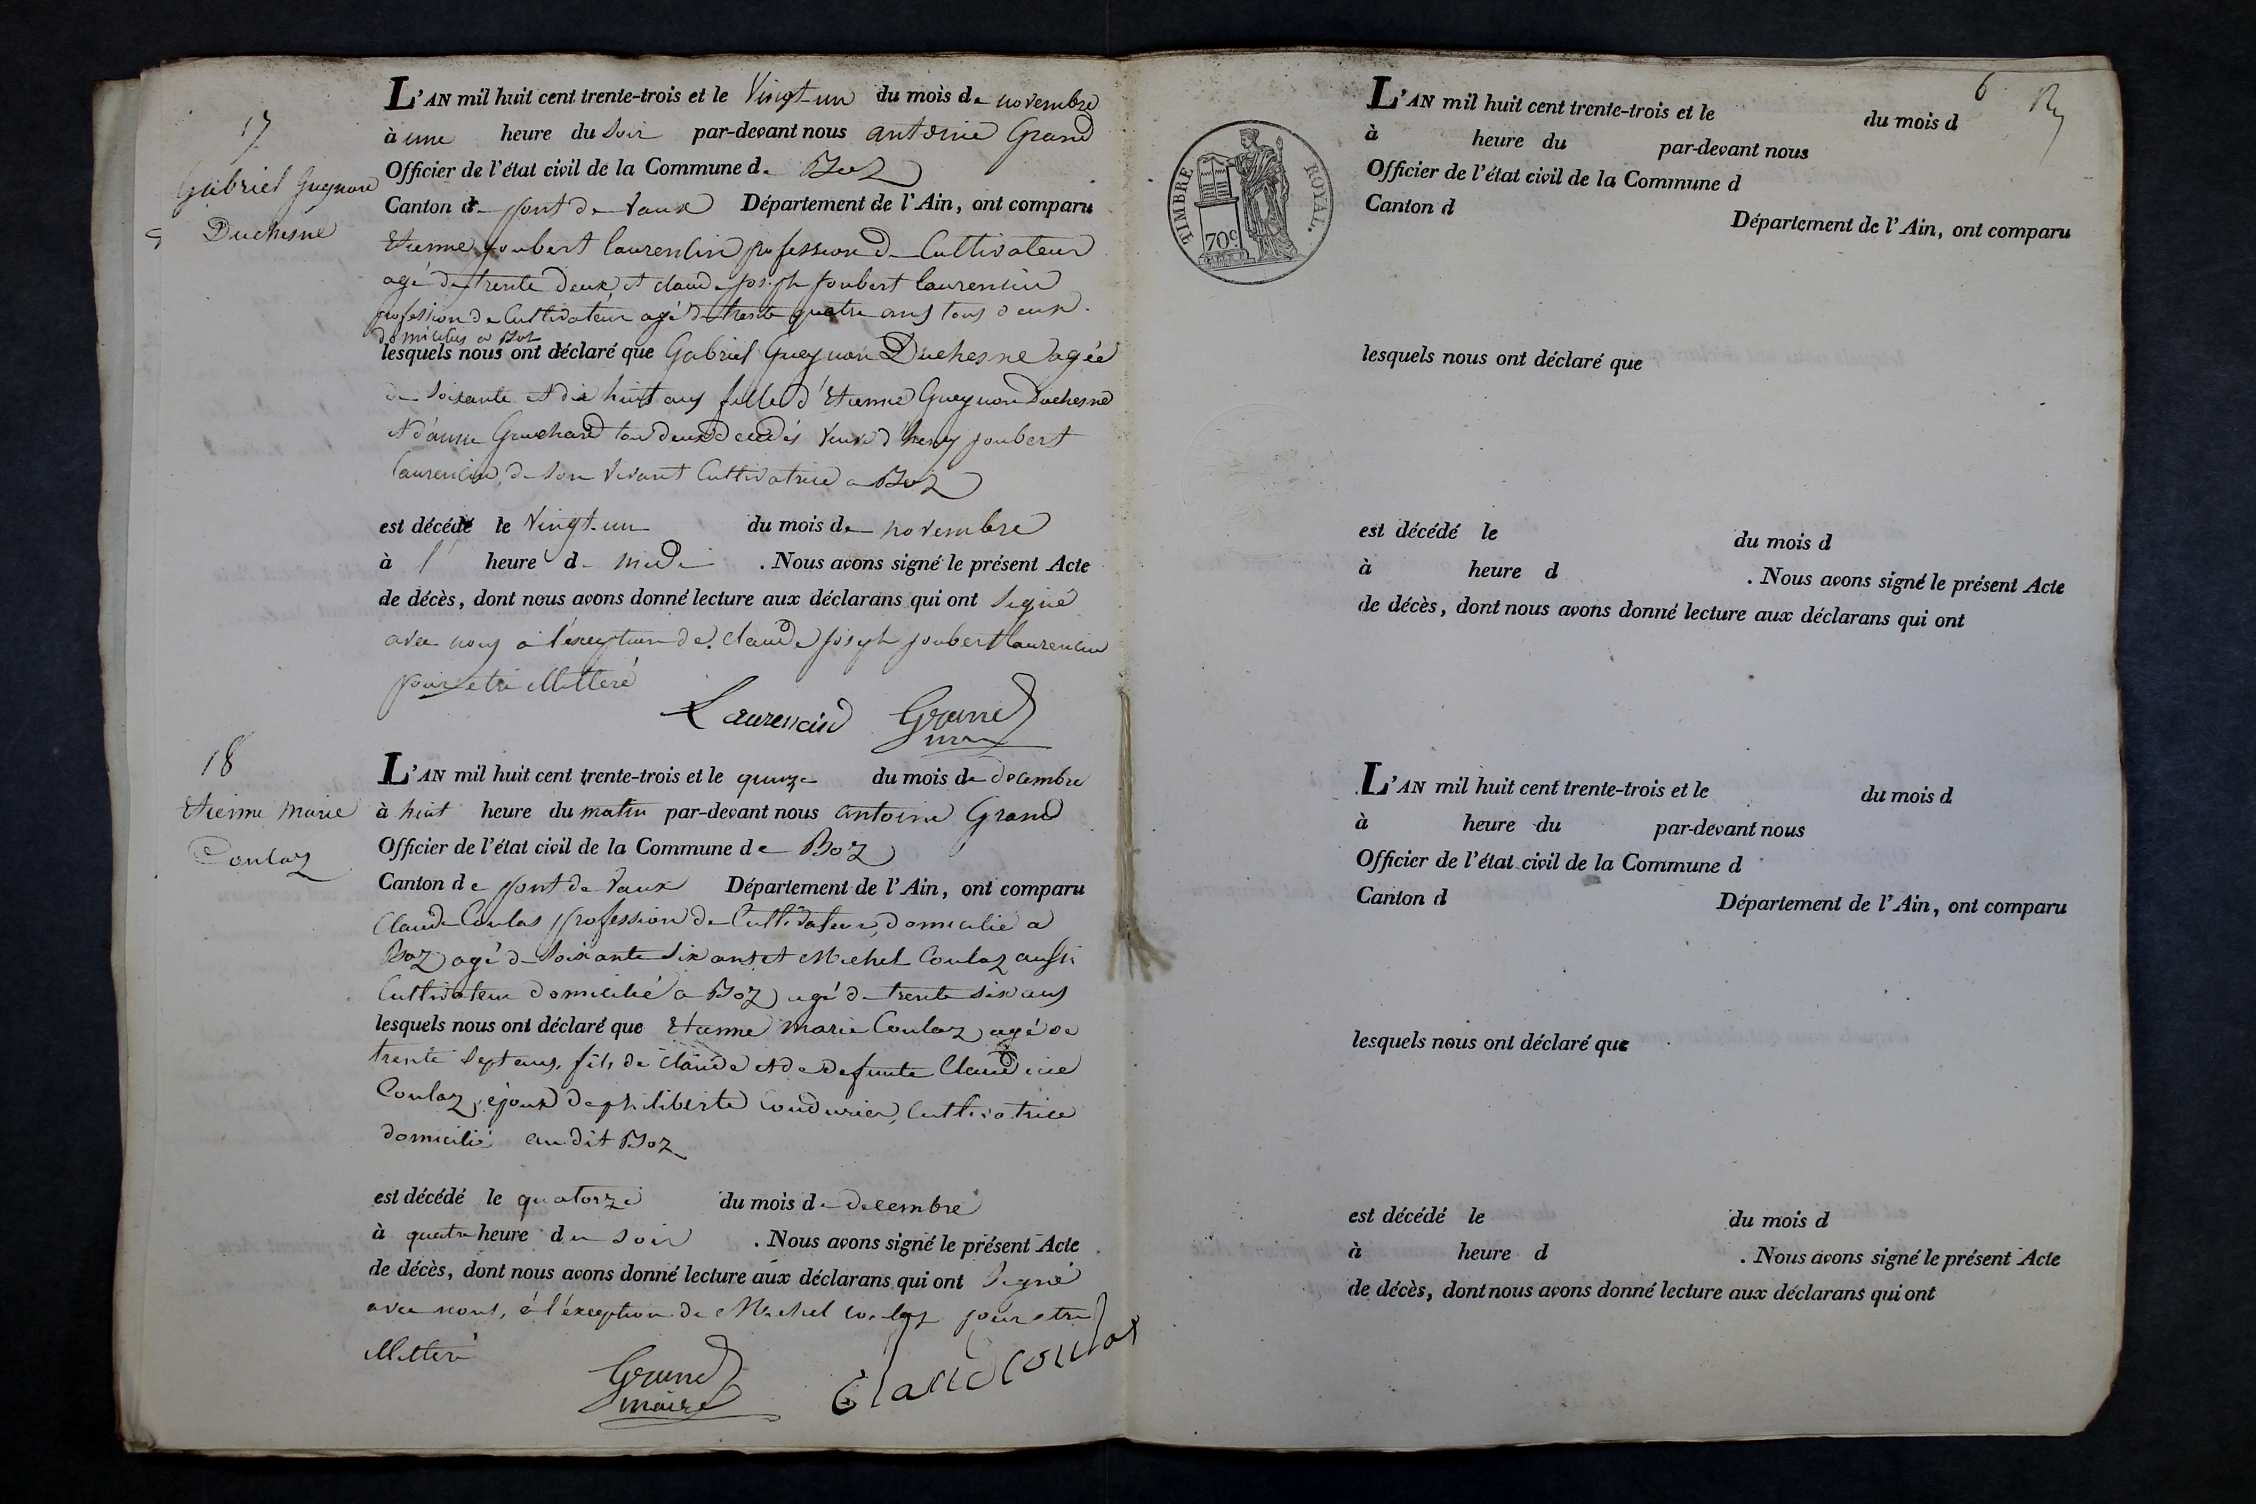 17
Gabriel Gueynon
Duchesne
L'AN mil huit cent trente-trois et le Vingt-un du mois de novembre
à une heure du Soir par-devant nous antoine Grand
Officier de l'état civil de la Commune de Boz
Canton de pont de Vaux Département de l'Ain, ont comparu
Etienne joubert laurencin profession de Cultivateur
agé de trente deux et claude joseph joubert laurencin
profession de Cultivateur agé de trente quatre ans tous deux
domiciliés a Boz
lesquels nous ont déclaré que Gabriel Gueynon Duchesne agée
de Soixante et dix huit ans fille d'Etienne Gueynon Duchesne
et d'anne Guichard tou deux décédés veuve d'henry joubert
laurencin, de son vivant Cultivatrice a Boz
est décédé le Vingt-un du mois de novembre
à l' heure de midi . Nous avons signé le présent Acte
de décès, dont nous avons donné lecture aux déclarans qui ont Signé
avec nous a l'exeption de claude joseph joubert laurencin
pour etre illitteré
Laurencin Grand
maire
18
Etienne Marie
Coulaz
L'AN mil huit cent trente-trois et le quinze du mois de decembre
à huit heure du matin par-devant nous antoine Grand
Officier de l'état civil de la Commune de Boz
Canton de pont de Vaux Département de l'Ain, ont comparu
Claude Coulas profession de Cultivateur, domicilié a
Boz agé de Soixante Six ans et Michel Coulaz aussi
Cultivateur domicilié a Boz agé de trente six ans
lesquels nous ont déclaré que Etienne Marie Coulaz agé de
trente Sept ans, fils de claude et de defunte Claudine
Coulaz, époux de philiberte Coudurier, Cultivatrice
domicilié audit Boz
est décédé le quatorze du mois de decembre
à quatre heure du Soir . Nous avons signé le présent Acte
de décès, dont nous avons donné lecture aux déclarans qui ont Signé
avec nous, à l'éxeption de Michel Coulaz pour etre
illitteré
Grand
maire
Claude Coulas
6
TIMBRE ROYAL.
70c
L'AN mil huit cent trente-trois et le du mois d
à heure du par-devant nous
Officier de l'état civil de la Commune d
Canton d
Département de l'Ain, ont comparu
lesquels nous ont déclaré que
est décédé le du mois d
à heure d . Nous avons signé le présent Acte
de décès, dont nous avons donné lecture aux déclarans qui ont
L'AN mil huit cent trente-trois et le du mois d
à heure du par-devant nous
Officier de l'état civil de la Commune d
Canton d
Département de l'Ain, ont comparu
lesquels nous ont déclaré que
est décédé le du mois d
à heure d . Nous avons signé le présent Acte
de décès, dont nous avons donné lecture aux déclarans qui ont